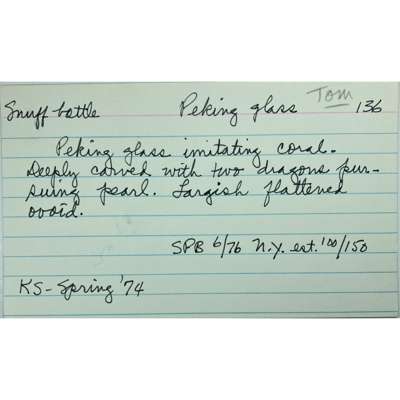 Snuff bottle Peking glass Tom 136
Peking glass imitating coral.
Deeply carved with two dragons pur-
suing pearl. Largish flattened
ovoid.
SPB 6/76 N.Y. est. 100/150
KS - Spring '74